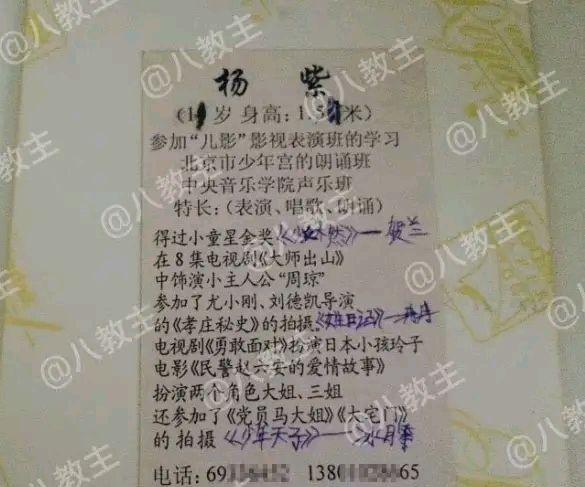 杨 紫
(11岁 身高:1.5 米)
参加“儿影”影视表演班的学习
北京市少年宫的朗诵班
中央音乐学院声乐班
特长:(表演、唱歌、朗诵)
得过小童星金奖 — 贺兰
在8集电视剧《大师出山》
中饰演小主人公“周琼”
参加了尤小刚、刘德凯导演
的《孝庄秘史》的拍摄、
电视剧《勇敢面对》扮演日本小孩玲子
电影《民警赵六安的爱情故事》
扮演两个角色大姐、三姐
还参加了《党员马大姐》《大宅门》
的拍摄《少年天子》—冰月
电话:69 138 65
@八教主
@八教主
@八教主
@八教主
@八教主
@八教主
@八教主
@八教主